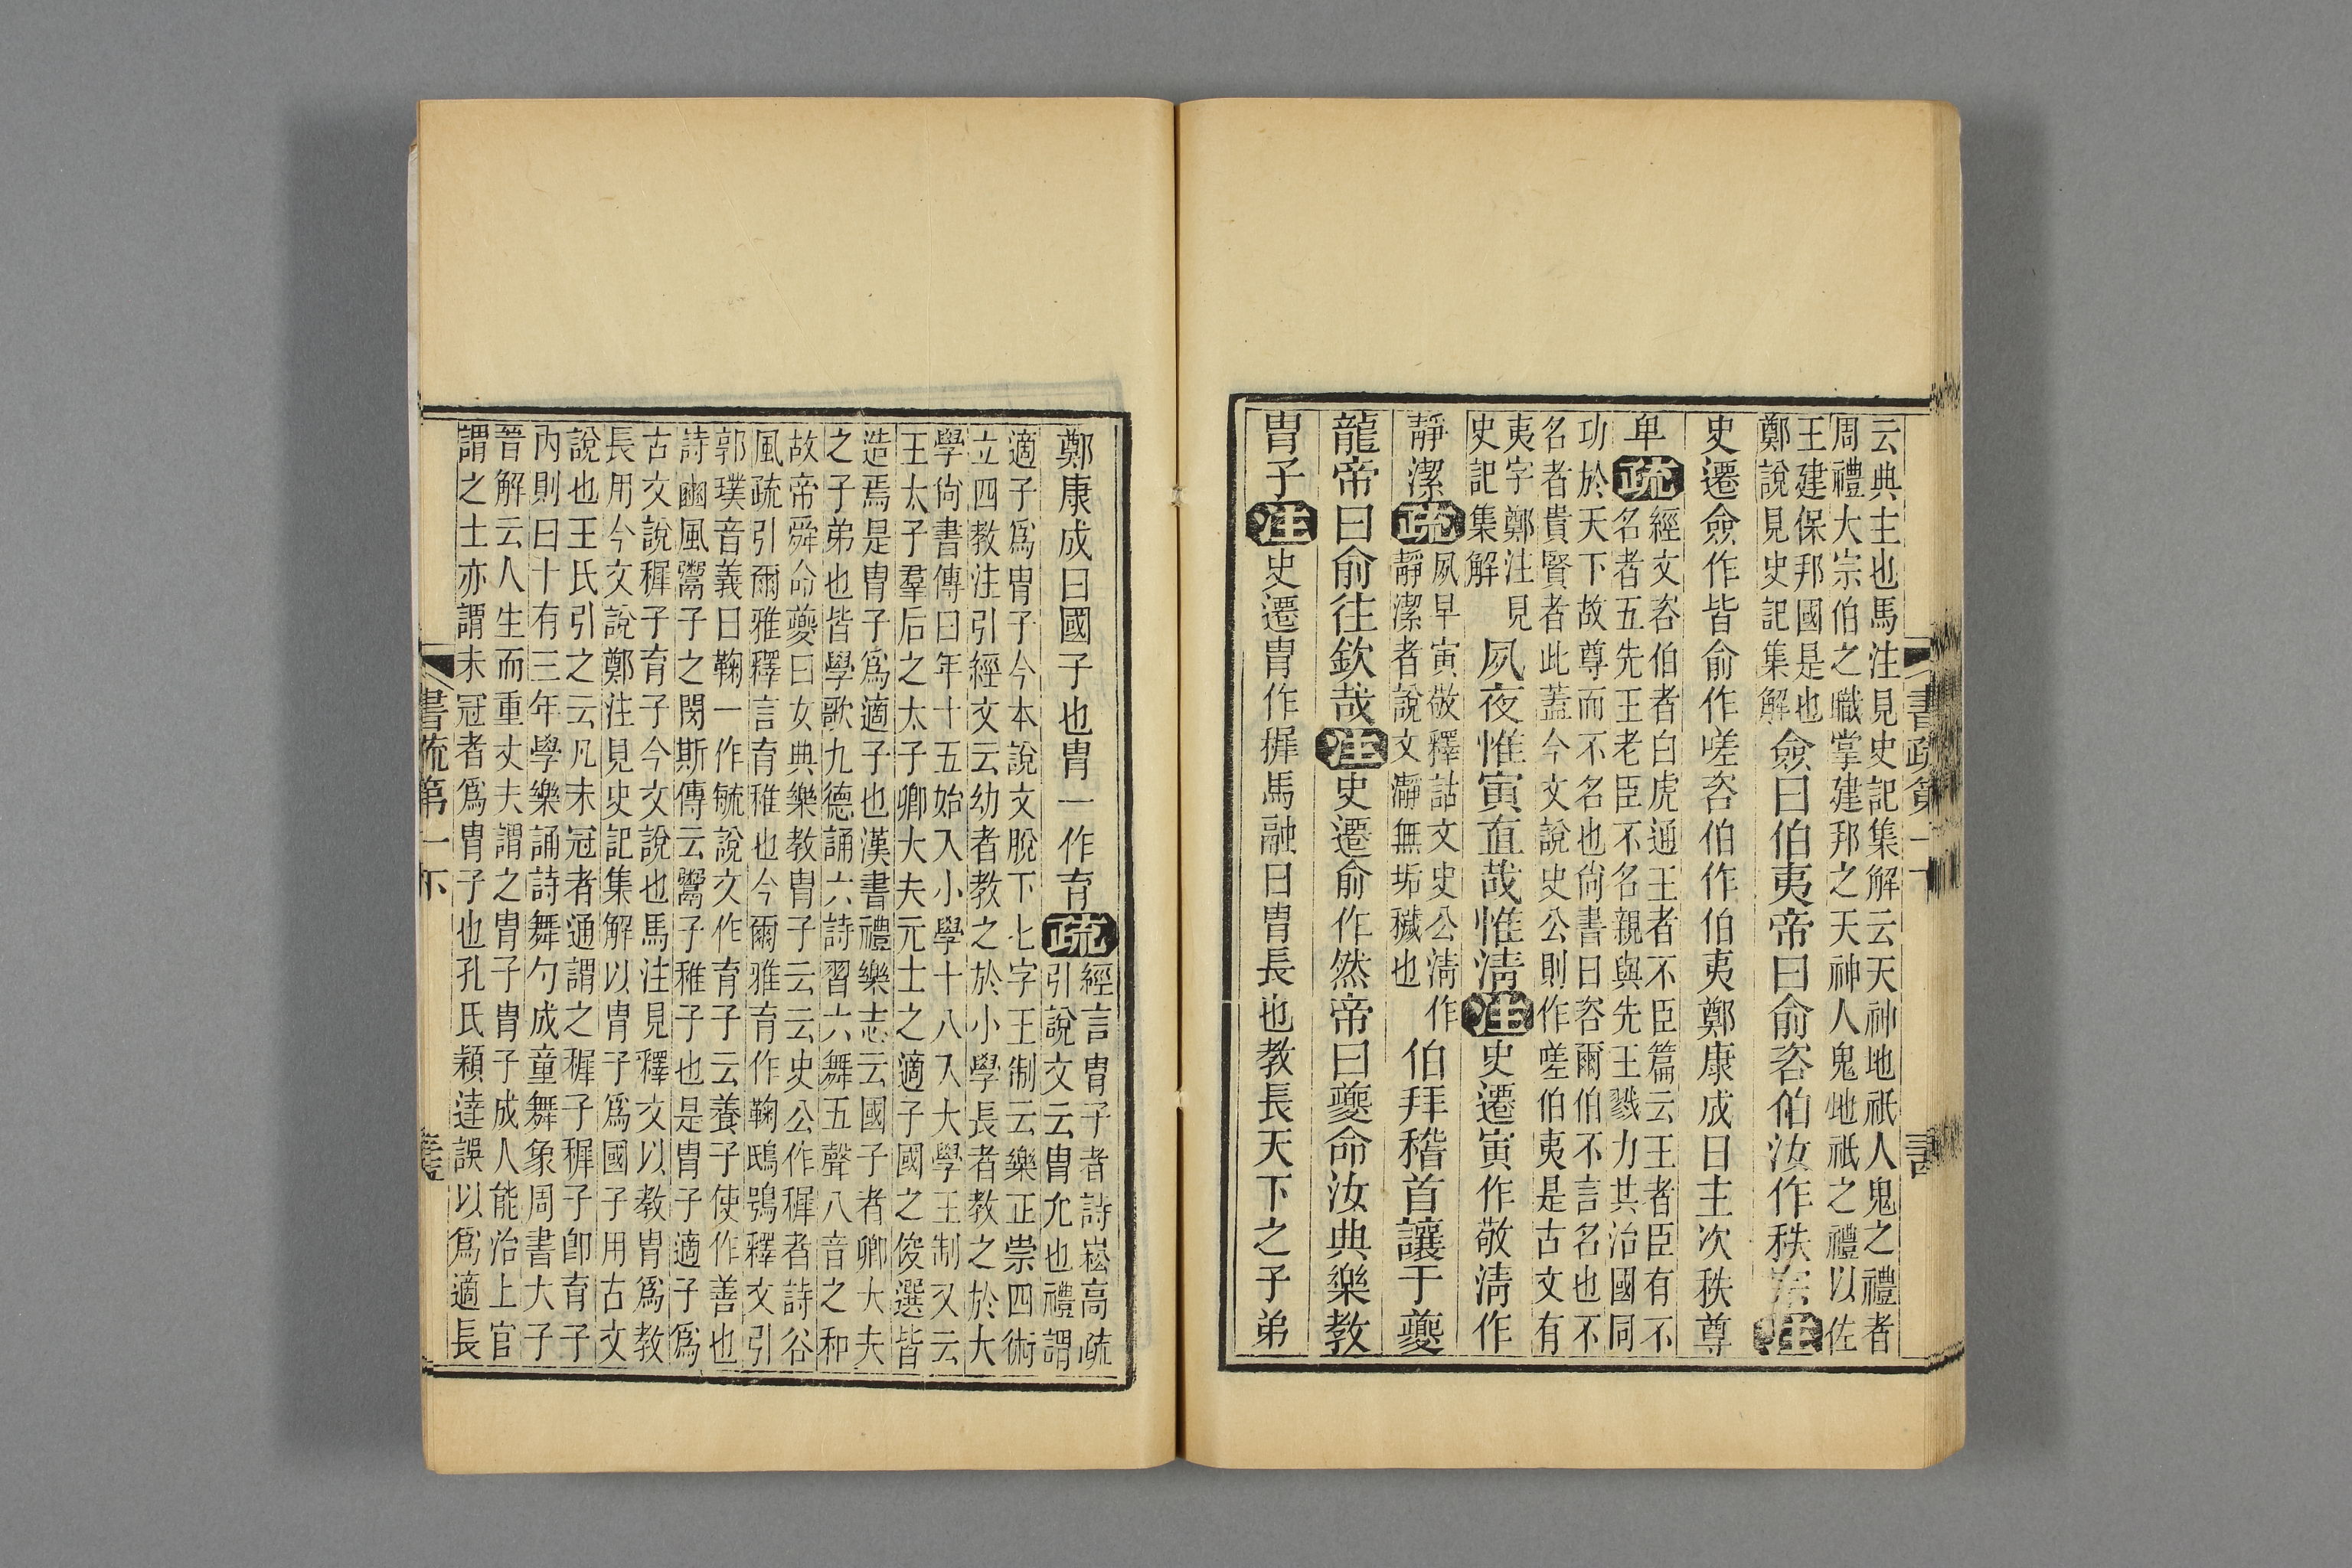 云典主也馬注見史記集解云天神地祇人鬼之禮者
周禮大宗伯之職掌建邦之天神人鬼地祇之禮以佐
王建保邦國是也
鄭說見史記集解
僉曰伯夷帝曰俞咨伯汝作秩宗注
史遷僉作皆俞作嗟咨伯作伯夷鄭康成曰主次秩尊
卑疏
經文咨伯者白虎通王者不臣篇云王者臣有不
名者五先王老臣不名親與先王戮力共治國同
功於天下故尊而不名也尙書曰咨爾伯不言名也不
名者貴賢者此蓋今文說史公則作嗟伯夷是古文有
夷字鄭注見
史記集解
夙夜惟寅直哉惟淸注史遷寅作敬淸作
靜潔疏
夙早寅敬釋詁文史公淸作
靜潔者說文瀞無垢穢也
伯拜稽首讓于夔
龍帝曰俞往欽哉注史遷俞作然帝曰夔命汝典樂教
胄子注史遷胄作穉馬融曰胄長也教長天下之子弟
鄭康成曰國子也胄一作育疏
經言胄子者詩崧高疏
引說文云胄允也禮謂
適子爲胄子今本說文脫下七字王制云樂正崇四術
立四教注引經文云幼者教之於小學長者教之於大
學尙書傳曰年十五始入小學十八入大學王制又云
王太子羣后之太子卿大夫元士之適子國之俊選皆
造焉是胄子爲適子也漢書禮樂志云國子者卿大夫
之子弟也皆學歌九德誦六詩習六舞五聲八音之和
故帝舜命夔曰女典樂教胄子云云史公作穉者詩谷
風疏引爾雅釋言育稚也今爾雅育作鞠鴟鴞釋文引
郭璞音義曰鞠一作毓說文作育子云養子使作善也
詩豳風鬻子之閔斯傳云鬻子稚子也是胄子適子爲
古文說穉子育子今文說也馬注見釋文以教胄爲教
長用今文說鄭注見史記集解以胄子爲國子用古文
說也王氏引之云凡未冠者通謂之穉子穉子卽育子
內則曰十有三年學樂誦詩舞勺成童舞象周書大子
晉解云人生而重丈夫謂之胄子胄子成人能治上官
謂之士亦謂未冠者爲胄子也孔氏穎達誤以爲適長
書疏第一下